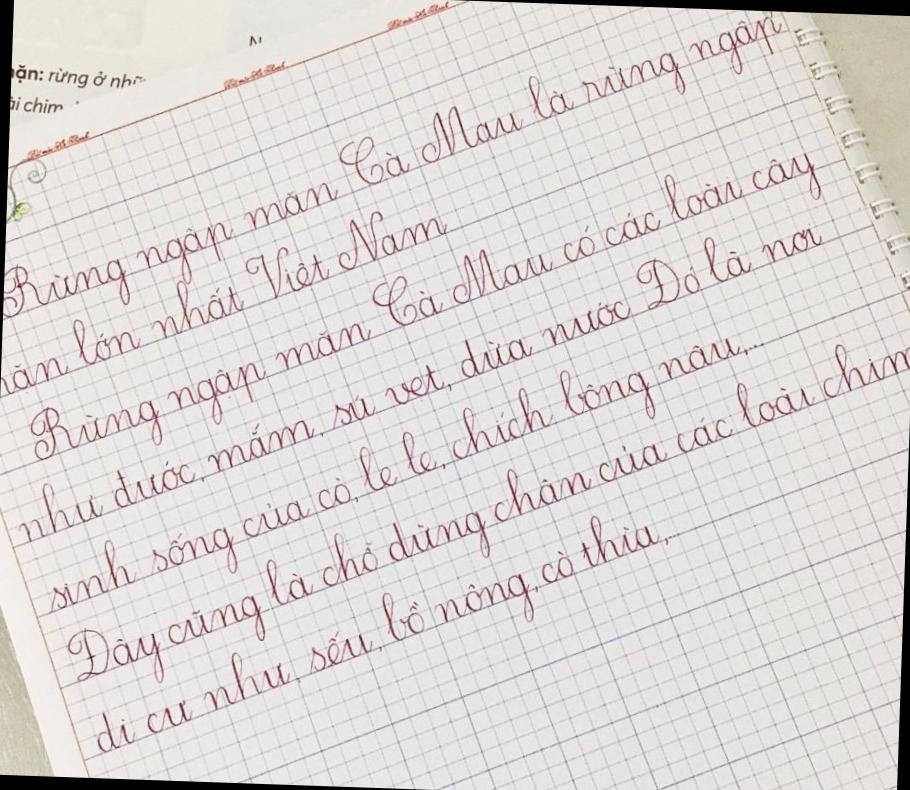 rừng ở
ài chim
Rừng ngập mặn Cà Mau là rừng ngập
mặn lớn nhất Việt Nam
Rừng ngập mặn Cà Mau có các loài cây
như đước, mắm, sú vẹt, dừa nước Đó là nơi
sinh sống của cò, le le, chích bông nâu,...
Đây cũng là chỗ dừng chân của các loài chim
di cư như, sếu, bồ nông, cò thìa,...